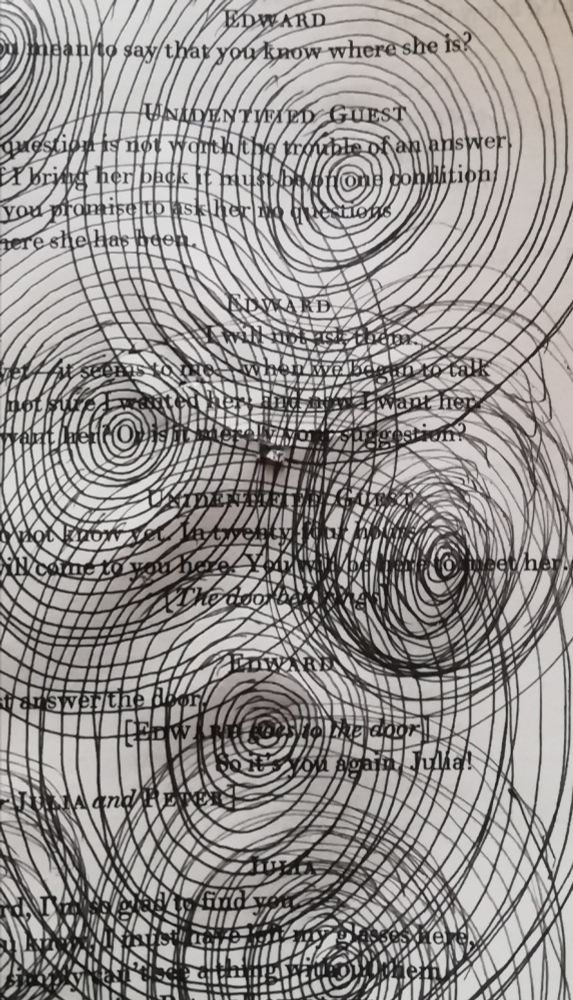 EDWARD
mean to say that you know where she is?
UNIDENTIFIED GUEST
question is not worth the trouble of an answer.
I bring her back it must be on one condition:
you promise to ask her no questions
here she has been.
EDWARD
I will not ask them.
yet—it seems to me—when we began to talk
not sure I wanted her; and now I want her.
want her? Or is it merely your suggestion?
UNIDENTIFIED GUEST
not know yet. In twenty-four hours
will come to you here. You will be here to meet her.
[The doorbell rings]
EDWARD
answer the door.
[EDWARD goes to the door]
So it's you again, Julia!
JULIA and PETER]
JULIA
I'm so glad to find you.
know, I must have left my glasses here,
simply can't see a thing without them.